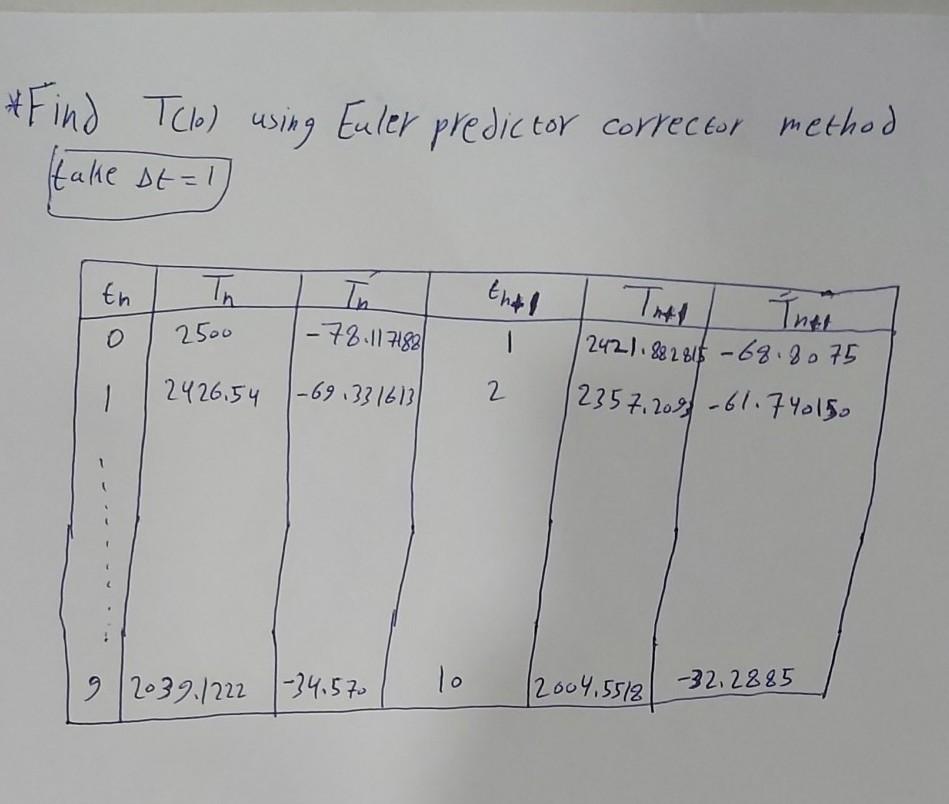 *Find T(10) using Euler predictor corrector method
take Δt = 1
tn Tn Tn' tn+1 Tn+1 T'n+1
0 2500 -78.117188 1 2421.882815 -68.8075
1 2426.54 -69.331613 2 2357.209 -61.740150
9 2039.1222 -34.570 10 2004.5518 -32.2885